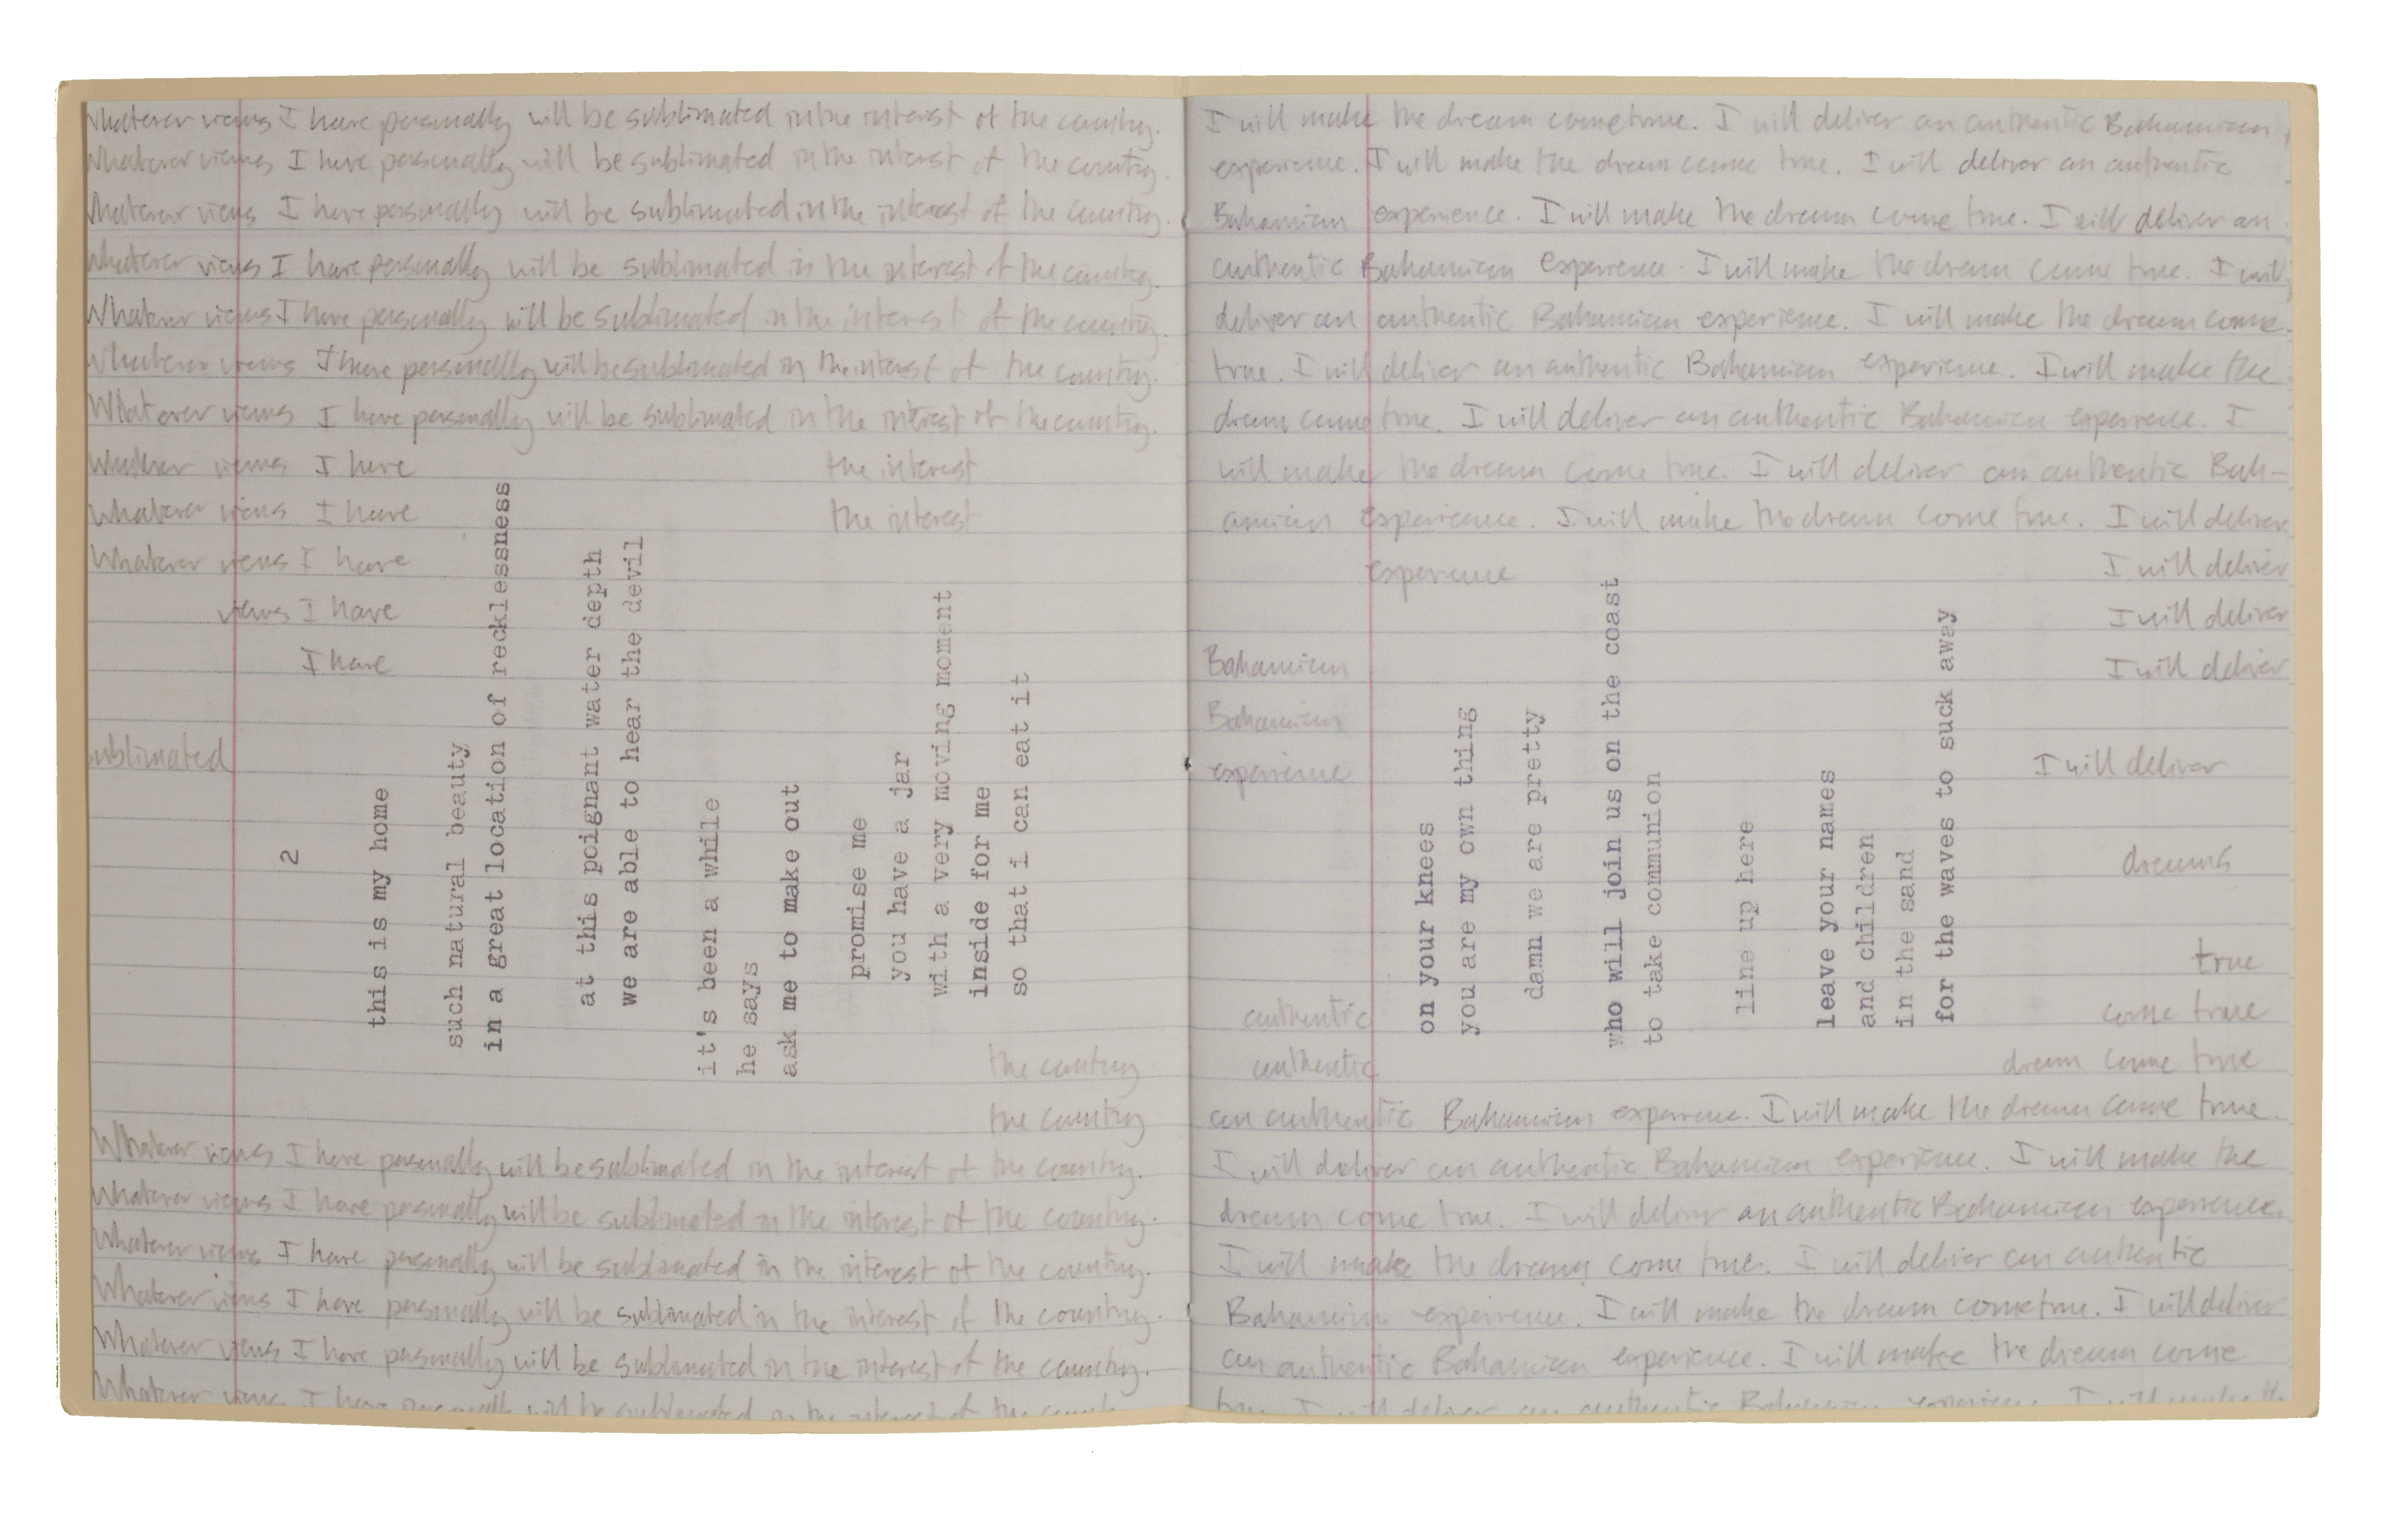 Whatever views I have personally will be sublimated in the interest of the country.
Whatever views I have personally will be sublimated in the interest of the country.
Whatever views I have personally will be sublimated in the interest of the country.
Whatever views I have personally will be sublimated in the interest of the country.
Whatever views I have personally will be sublimated in the interest of the country.
Whatever views I have personally will be sublimated in the interest of the country.
Whatever views I have personally will be sublimated in the interest of the country.
Whatever views I have the interest
Whatever views I have the interest
Whatever views I have
views I have
I have
sublimated
2
this is my home
such natural beauty
in a great location of recklessness
at this poignant water depth
we are able to hear the devil
it's been a while
he says
ask me to make out
promise me
you have a jar
with a very moving moment
inside for me
so that i can eat it
the country
the country
Whatever views I have personally will be sublimated in the interest of the country.
Whatever views I have personally will be sublimated in the interest of the country.
Whatever views I have personally will be sublimated in the interest of the country.
Whatever views I have personally will be sublimated in the interest of the country.
Whatever views I have personally will be sublimated in the interest of the country.
Whatever views I have personally will be sublimated in the interest of the
I will make the dream come true. I will deliver an authentic Bahamian
experience. I will make the dream come true. I will deliver an authentic
Bahamian experience. I will make the dream come true. I will deliver an
authentic Bahamian experience. I will make the dream come true. I will
deliver an authentic Bahamian experience. I will make the dream come
true. I will deliver an authentic Bahamian experience. I will make the
dream come true. I will deliver an authentic Bahamian experience. I
will make the dream come true. I will deliver an authentic Bah-
amian experience. I will make the dream come true. I will deliver
experience I will deliver
I will deliver
Bahamian I will deliver
Bahamian
experience I will deliver
on your knees
you are my own thing
damn we are pretty
who will join us on the coast
to take communion
line up here
leave your names
and children
in the sand
for the waves to suck away
dreams
true
authentic come true
authentic dream come true
an authentic Bahamian experience. I will make the dream come true.
I will deliver an authentic Bahamian experience. I will make the
dream come true. I will deliver an authentic Bahamian experience.
I will make the dream come true. I will deliver an authentic
Bahamian experience. I will make the dream come true. I will deliver
an authentic Bahamian experience. I will make the dream come
true. I will deliver an authentic Bahamian experience. I will make